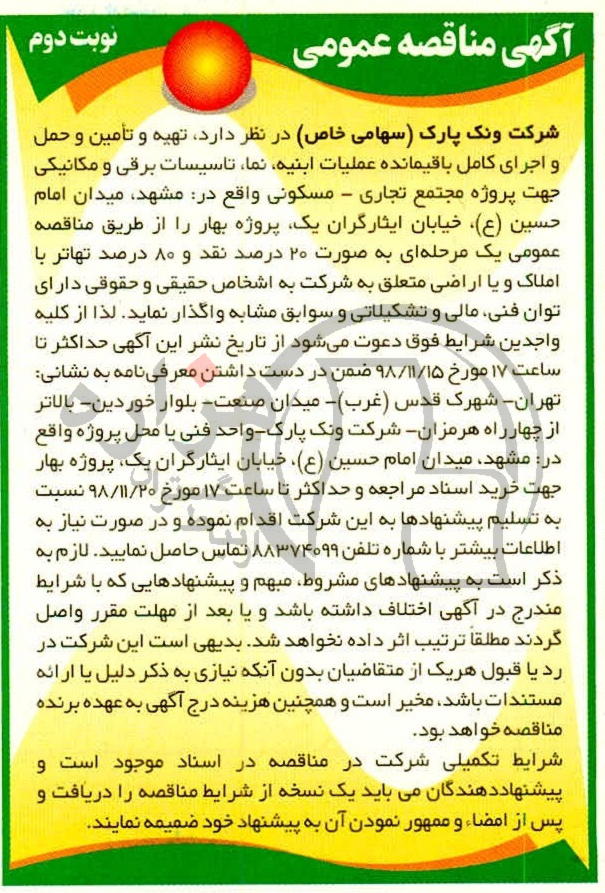 آگهی مناقصه عمومی
نوبت دوم
شرکت ونک پارک (سهامی خاص) در نظر دارد، تهیه و تأمین و حمل
و اجرای کامل باقیمانده عملیات ابنیه، نما، تاسیسات برقی و مکانیکی
جهت پروژه مجتمع تجاری - مسکونی واقع در: مشهد، میدان امام
حسین (ع)، خیابان ایثارگران یک، پروژه بهار را از طریق مناقصه
عمومی یک مرحله‌ای به صورت ۲۰ درصد نقد و ۸۰ درصد تهاتر با
املاک و یا اراضی متعلق به شرکت به اشخاص حقیقی و حقوقی دارای
توان فنی، مالی و تشکیلاتی و سوابق مشابه واگذار نماید. لذا از کلیه
واجدین شرایط فوق دعوت می‌شود از تاریخ نشر این آگهی حداکثر تا
ساعت ۱۷ مورخ ۹۸/۱۱/۱۵ ضمن در دست داشتن معرفی‌نامه به نشانی:
تهران- شهرک قدس (غرب)- میدان صنعت- بلوار خوردین- بالاتر
از چهارراه هرمزان- شرکت ونک پارک-واحد فنی یا محل پروژه واقع
در: مشهد، میدان امام حسین (ع)، خیابان ایثارگران یک، پروژه بهار
جهت خرید اسناد مراجعه و حداکثر تا ساعت ۱۷ مورخ ۹۸/۱۱/۲۰ نسبت
به تسلیم پیشنهادها به این شرکت اقدام نموده و در صورت نیاز به
اطلاعات بیشتر با شماره تلفن ۸۸۳۷۴۰۹۹ تماس حاصل نمایید. لازم به
ذکر است به پیشنهادهای مشروط، مبهم و پیشنهادهایی که با شرایط
مندرج در آگهی اختلاف داشته باشد و یا بعد از مهلت مقرر واصل
گردند مطلقاً ترتیب اثر داده نخواهد شد. بدیهی است این شرکت در
رد یا قبول هریک از متقاضیان بدون آنکه نیازی به ذکر دلیل یا ارائه
مستندات باشد، مخیر است و همچنین هزینه درج آگهی به عهده برنده
مناقصه خواهد بود.
شرایط تکمیلی شرکت در مناقصه در اسناد موجود است و
پیشنهاددهندگان می باید یک نسخه از شرایط مناقصه را دریافت و
پس از امضاء و ممهور نمودن آن به پیشنهاد خود ضمیمه نمایند.